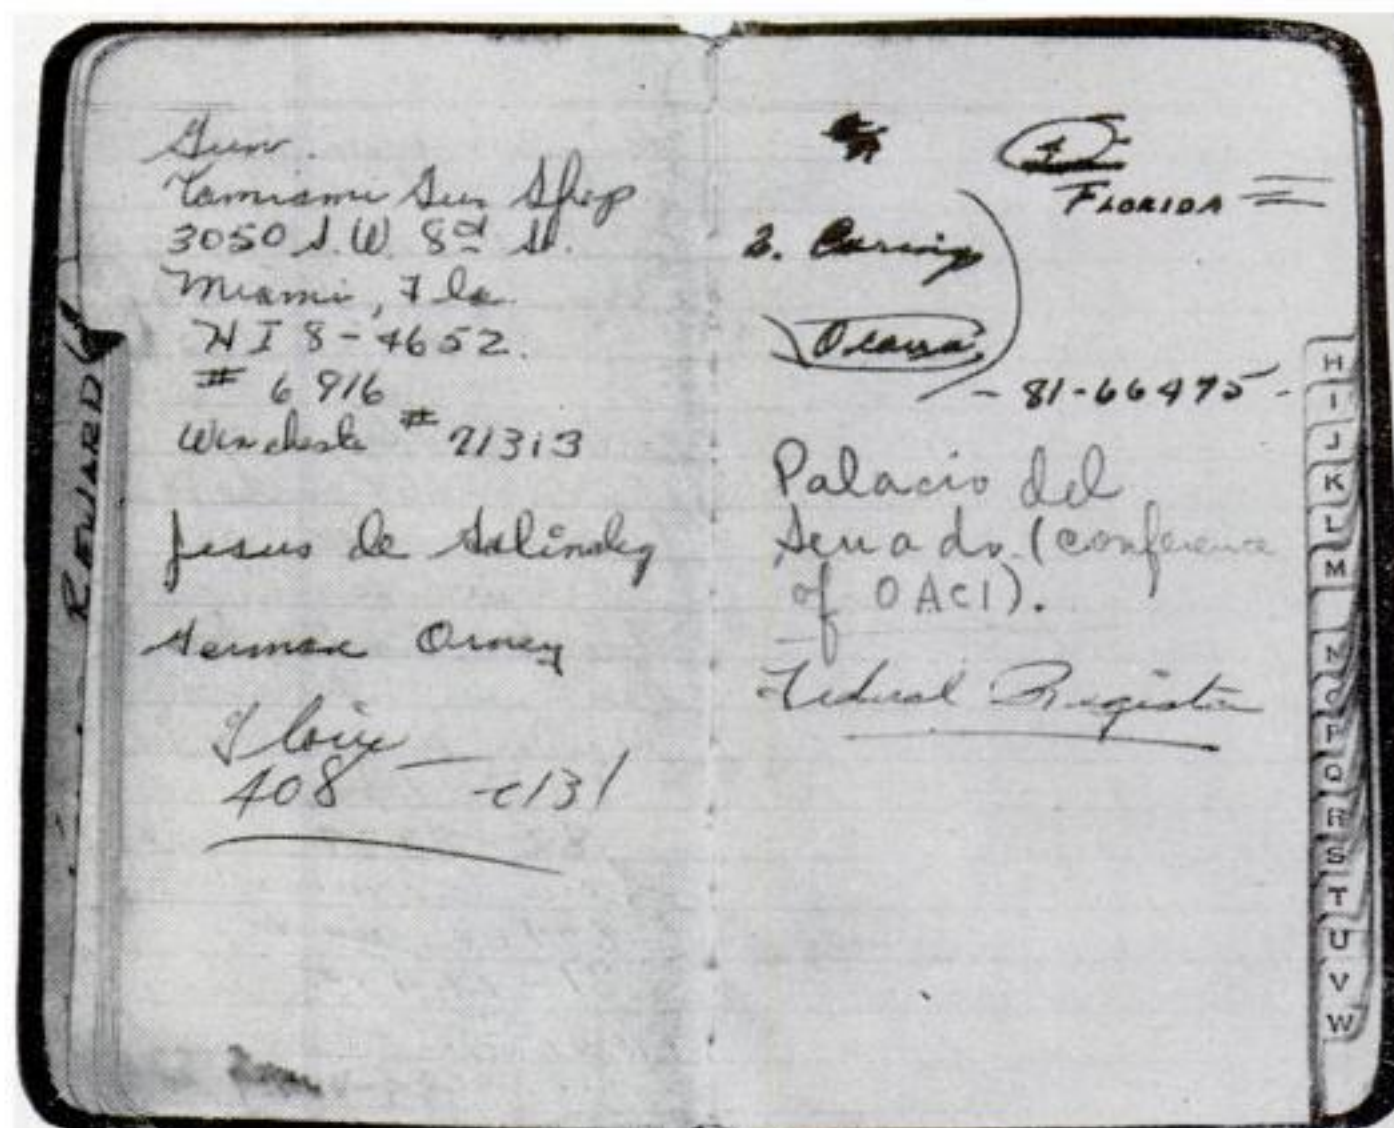 Gun.
Tamiami Gun Shop
3050 S.W. 8th St.
Miami, Fla.
HI 8-4652.
# 6916
Winchester # 71313
Jesus de Galindez
German Ornes
408 - c131
REWARD
FLORIDA
2.
- 81-66475 -
Palacio del
Senado (conference
of OACI).
Federal Register
H
I
J
K
L
M
N
O
P
Q
R
S
T
U
V
W